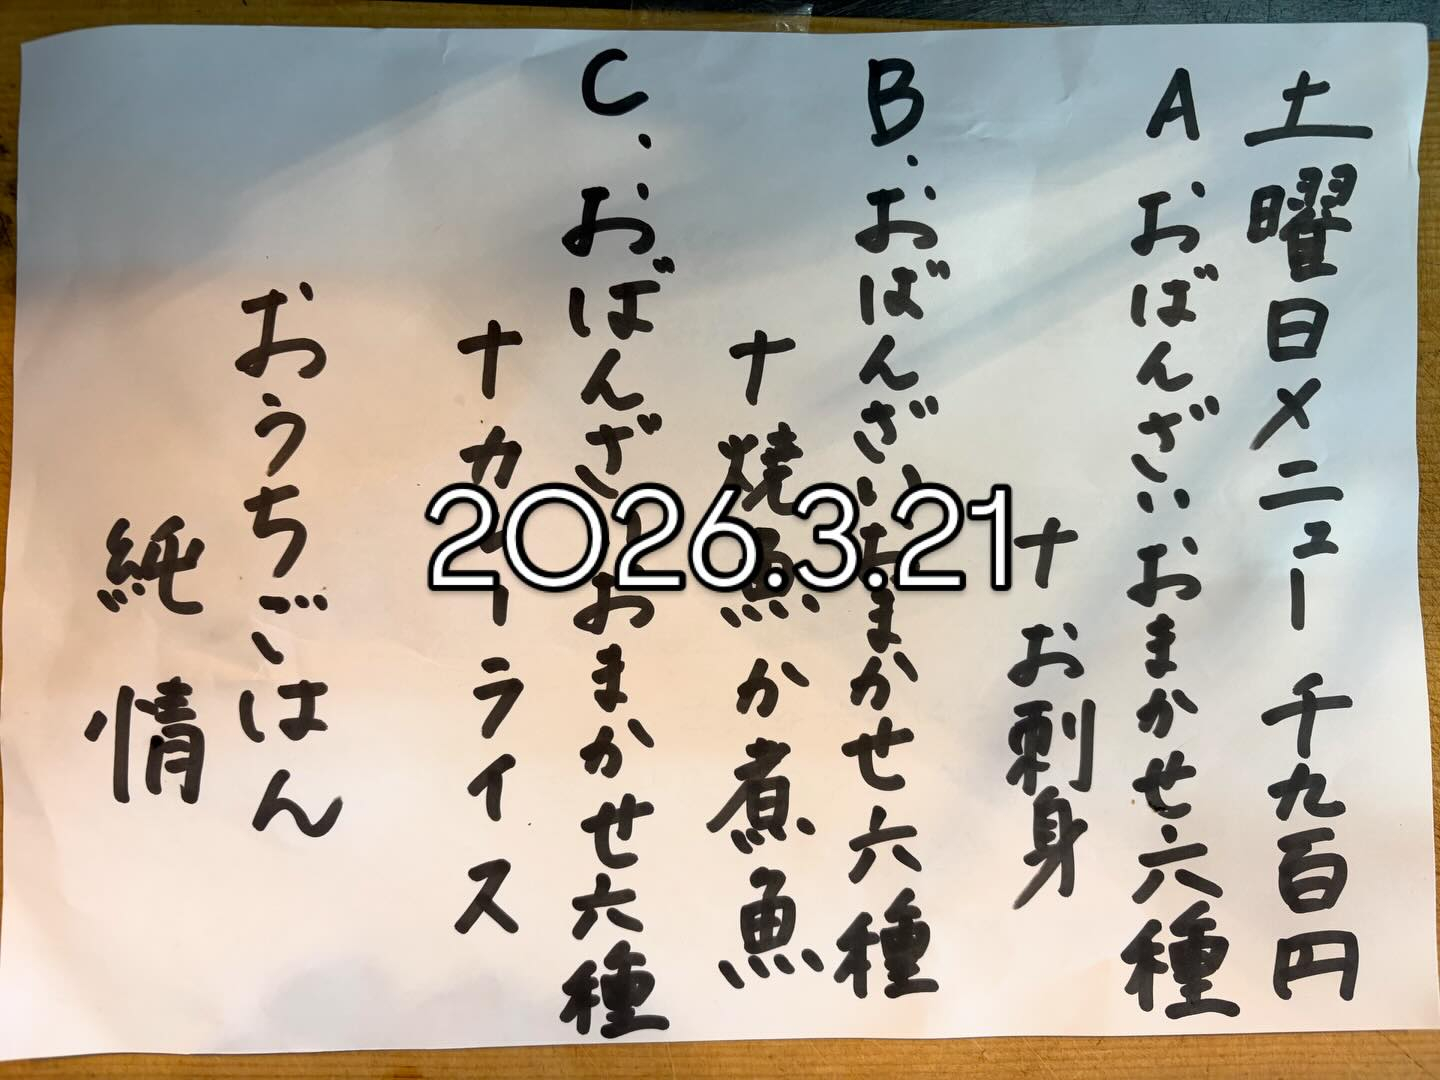 土曜日メニュー 千九百円
A おばんざいおまかせ六種
+お刺身
B.おばんざいおまかせ六種
+焼魚か煮魚
C.おばんざいおまかせ六種
+カレーライス
おうちごはん
純情
2026.3.21